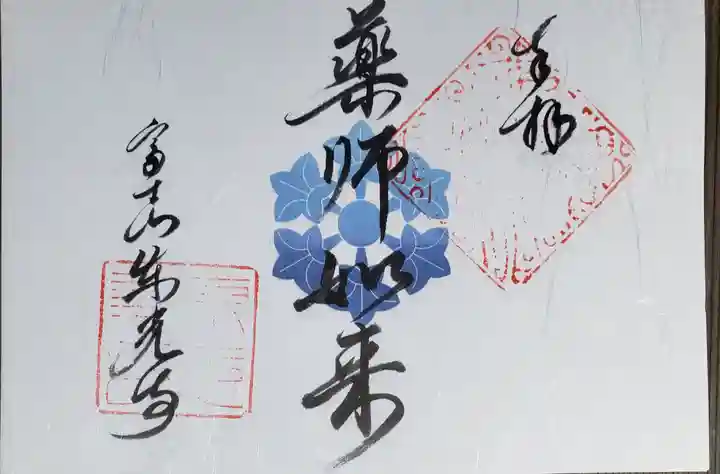 奉拝
薬師如来
富士山東光寺